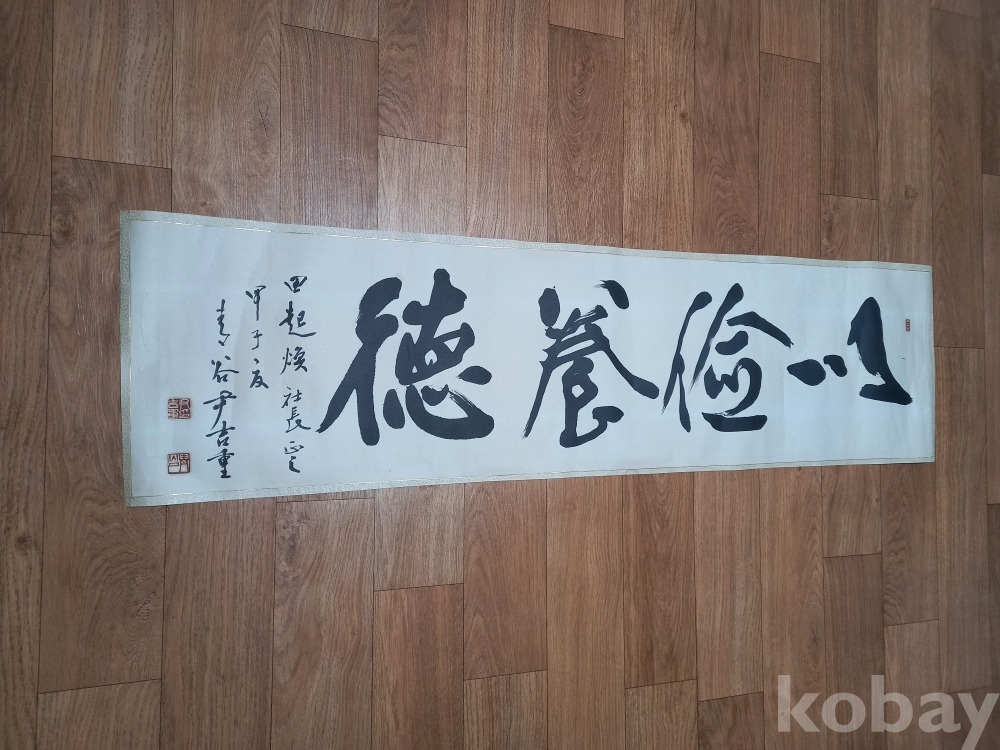 以儉養德
田起煥社長正之
甲子夏
青谷尹吉重
kobay